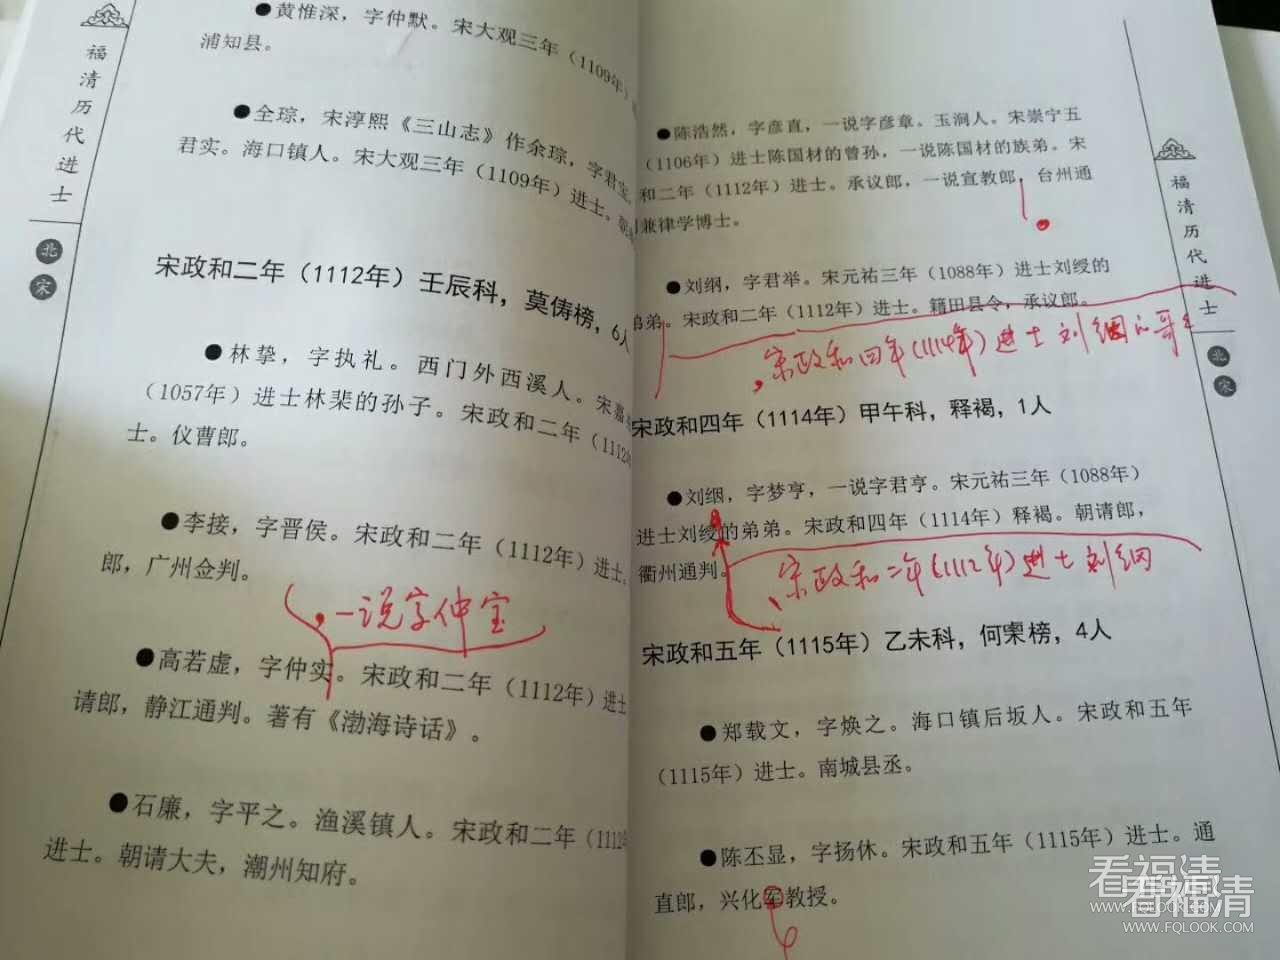 福清历代进士
北宋
●黄惟深，字仲默。宋大观三年（1109年）
浦知县。
●全琮，宋淳熙《三山志》作余琮，字君宝，
君实。海口镇人。宋大观三年（1109年）进士。朝
宋政和二年（1112年）壬辰科，莫俦榜，6人
●林挚，字执礼。西门外西溪人。宋嘉
（1057年）进士林棐的孙子。宋政和二年（1112年
士。仪曹郎。
●李接，字晋侯。宋政和二年（1112年）进士。
郎，广州佥判。
，一说字仲宝
●高若虚，字仲实。宋政和二年（1112年）进士
请郎，静江通判。著有《渤海诗话》。
●石廉，字平之。渔溪镇人。宋政和二年（1112年
进士。朝请大夫，潮州知府。
福清历代进士
北宋
●陈浩然，字彦直，一说字彦章。玉涧人。宋崇宁五
（1106年）进士陈国材的曾孙，一说陈国材的族弟。宋
和二年（1112年）进士。承议郎，一说宣教郎，台州通
兼律学博士。
●刘纲，字君举。宋元祐三年（1088年）进士刘绶的
弟弟。宋政和二年（1112年）进士。籍田县令，承议郎。
，宋政和四年（1114年）进士刘絪的哥哥
宋政和四年（1114年）甲午科，释褐，1人
●刘絪，字梦亨，一说字君亨。宋元祐三年（1088年）
进士刘绶的弟弟。宋政和四年（1114年）释褐。朝请郎，
衢州通判。
、宋政和二年（1112年）进士刘纲
宋政和五年（1115年）乙未科，何㮚榜，4人
●郑载文，字焕之。海口镇后坂人。宋政和五年
（1115年）进士。南城县丞。
●陈丕显，字扬休。宋政和五年（1115年）进士。通
直郎，兴化军教授。
看福清
WWW.FQLOOK.COM
看福清
WWW.FQLOOK.COM